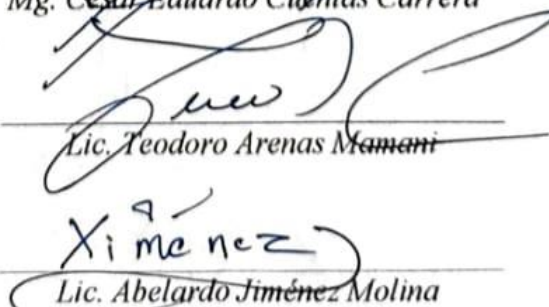 Mg. César Eduardo Cuentas Carrera
Lic. Teodoro Arenas Mamani
Ximénez
Lic. Abelardo Jiménez Molina